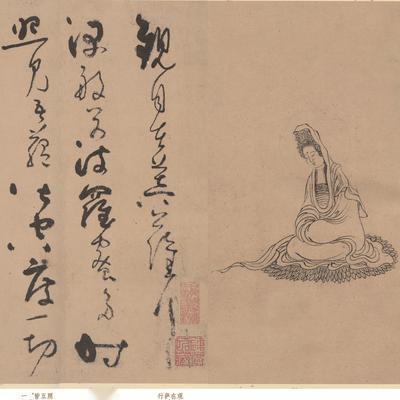 觀自在菩薩行
深般若波羅蜜多時
照見五蘊皆空度一切
行萨在观
一 皆五照